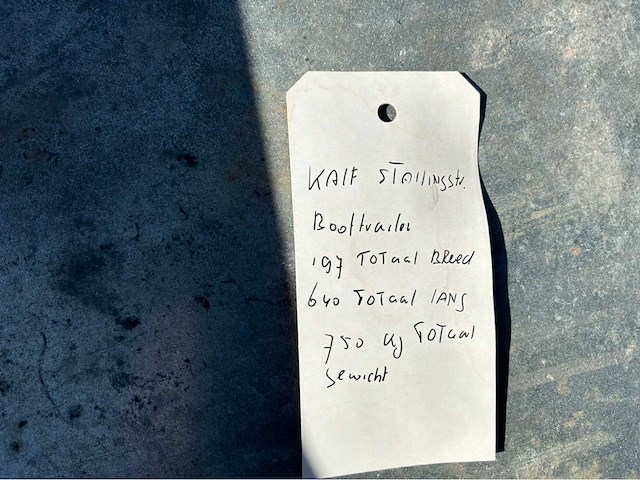 KALF STALLINGSTR.
Boottrailer
197 TOTaal Breed
640 TOTaal LANG
750 kg TOTaal
gewicht